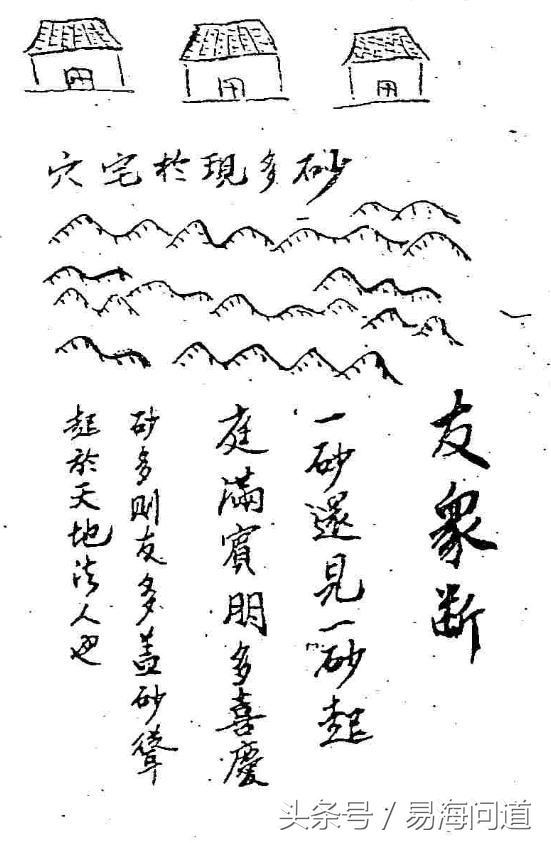 砂多現於宅穴
友衆斷
一砂還見一砂起
庭滿賓朋多喜慶
砂多則友多蓋砂聳
起於天地法人也
头条号 / 易海问道